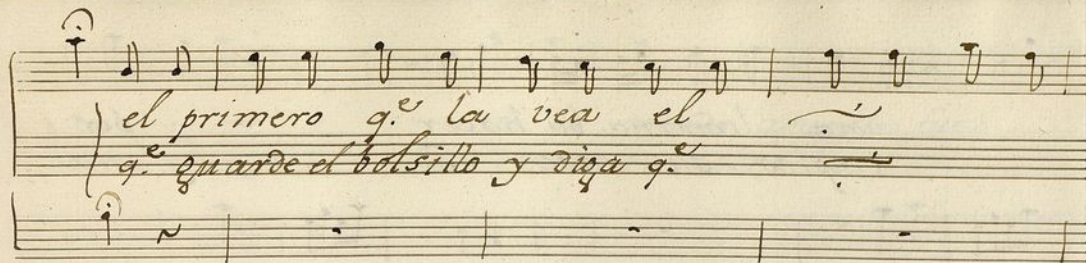 el primero q.e la vea el
q.e guarde el bolsillo y diga q.e